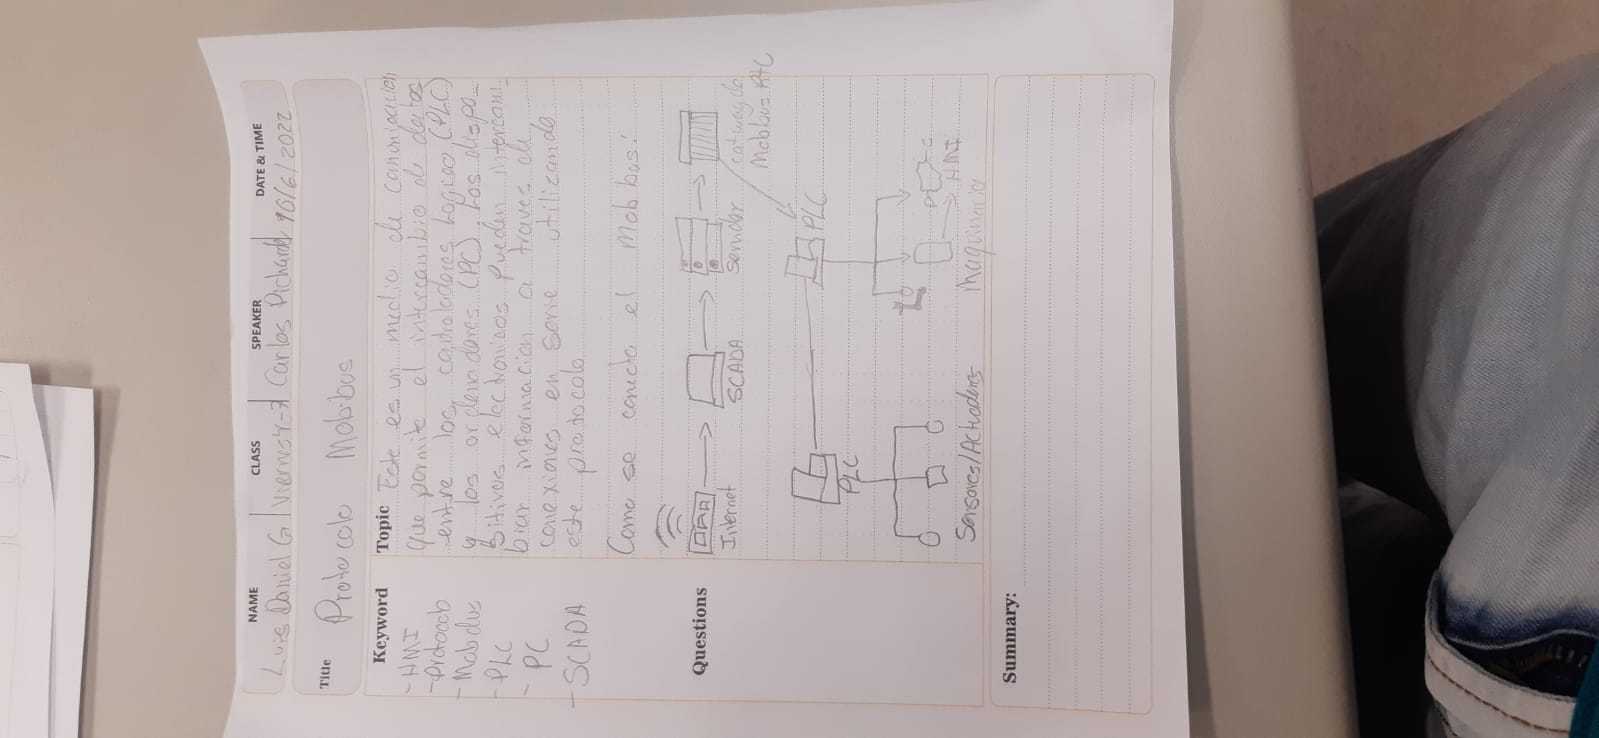 NAME CLASS SPEAKER DATE & TIME
Luis Daniel G Viernes 4-7 Carlos Pichardo 10/6/2022
Title Protocolo Mobibus
Keyword
- HMI
- Protocolo
- Mobdus
- PLC
- PC
- SCADA
Topic Este es un medio de comunicación
que permite el intercambio de datos
entre los controladores logico (PLC)
y los ordenadores (PC). Los dispo_
sitivos electronicos pueden intercam_
biar información a traves de
conexiones en serie utilizando
este protocolo
Como se conecta el Mobbus:
Internet SCADA Servidor
Mobbus
PLC PLC
HMI
Sensores/Actuadores Maquinaria
Questions
Summary: